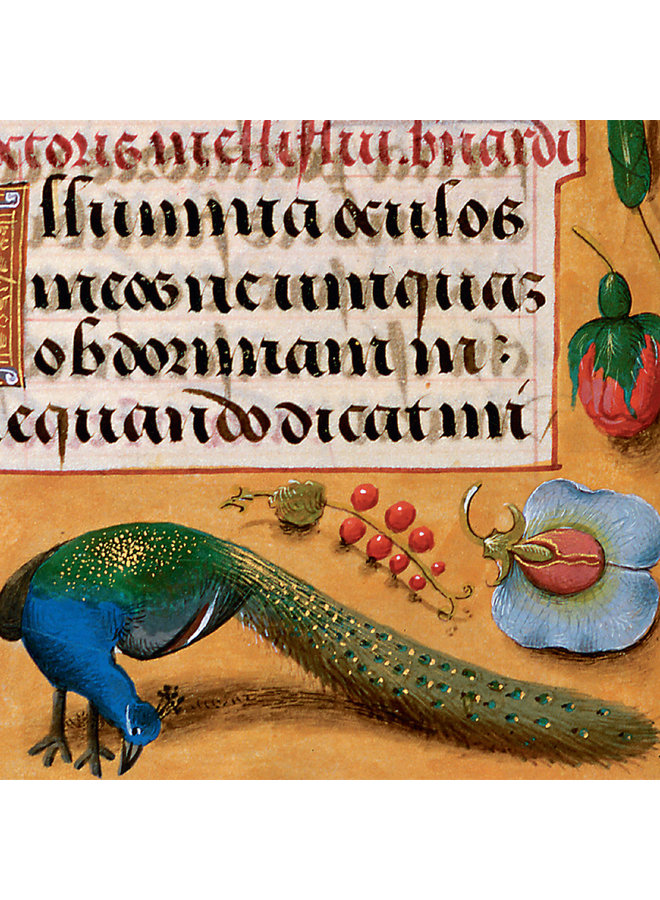 ctoris melliflui. bnardi
llumina oculos
meos ne umquaz
obdormiam in :
equando dicat ini